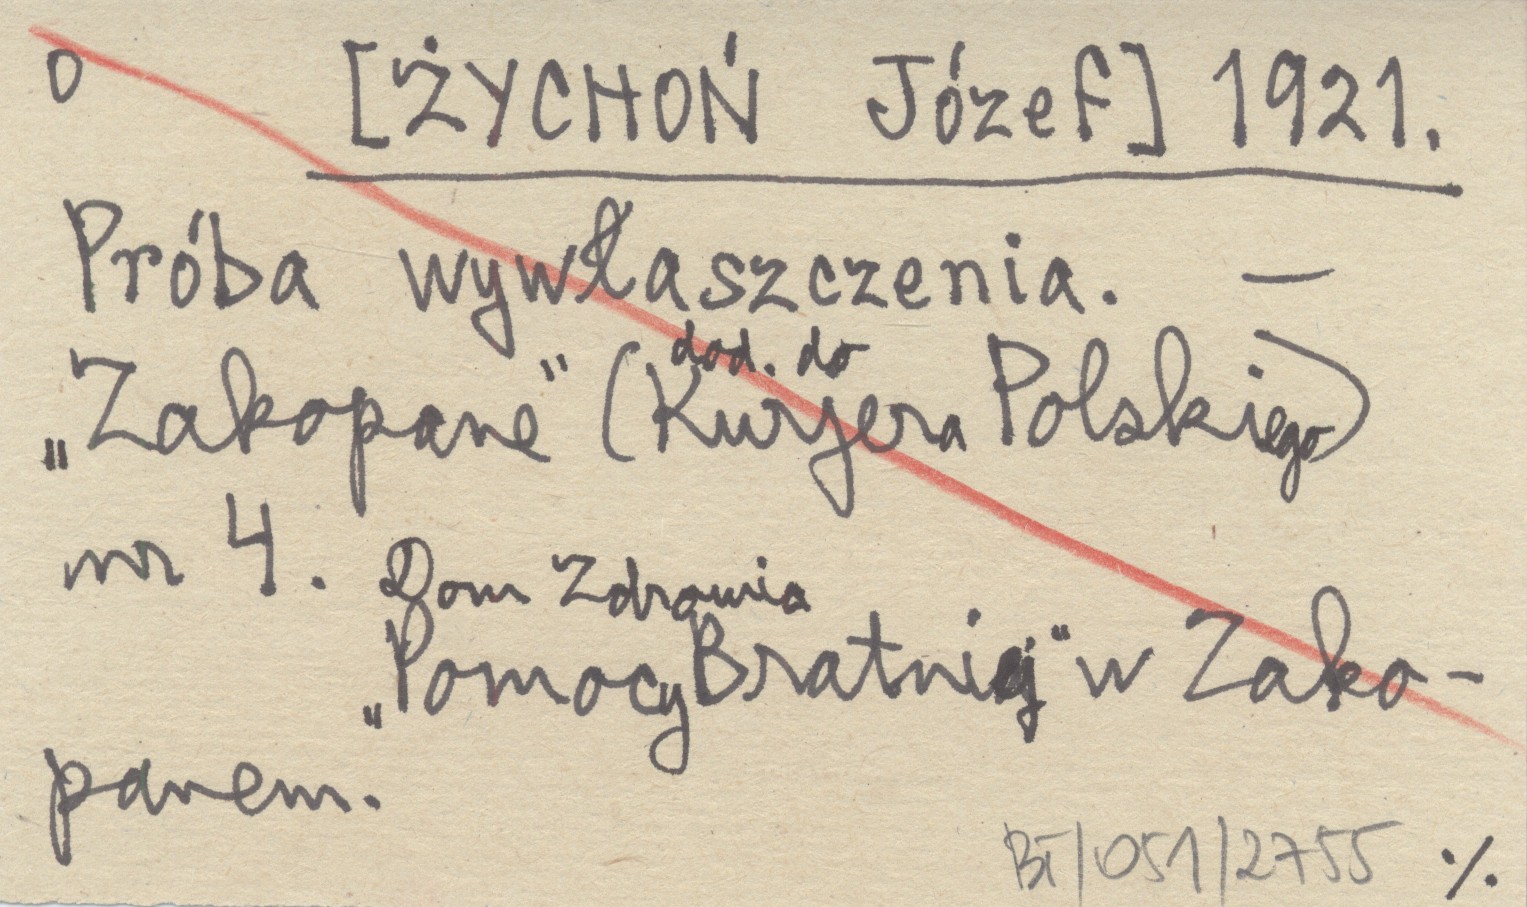 O [ŻYCHOŃ Józef] 1921.
Próba wywłaszczenia. —
dod. do
„Zakopane" (Kurjera Polskiego)
nr 4.
Dom Zdrowia
„Pomocy Bratniej" w Zako-
panem.
BT/051/2755 ./.